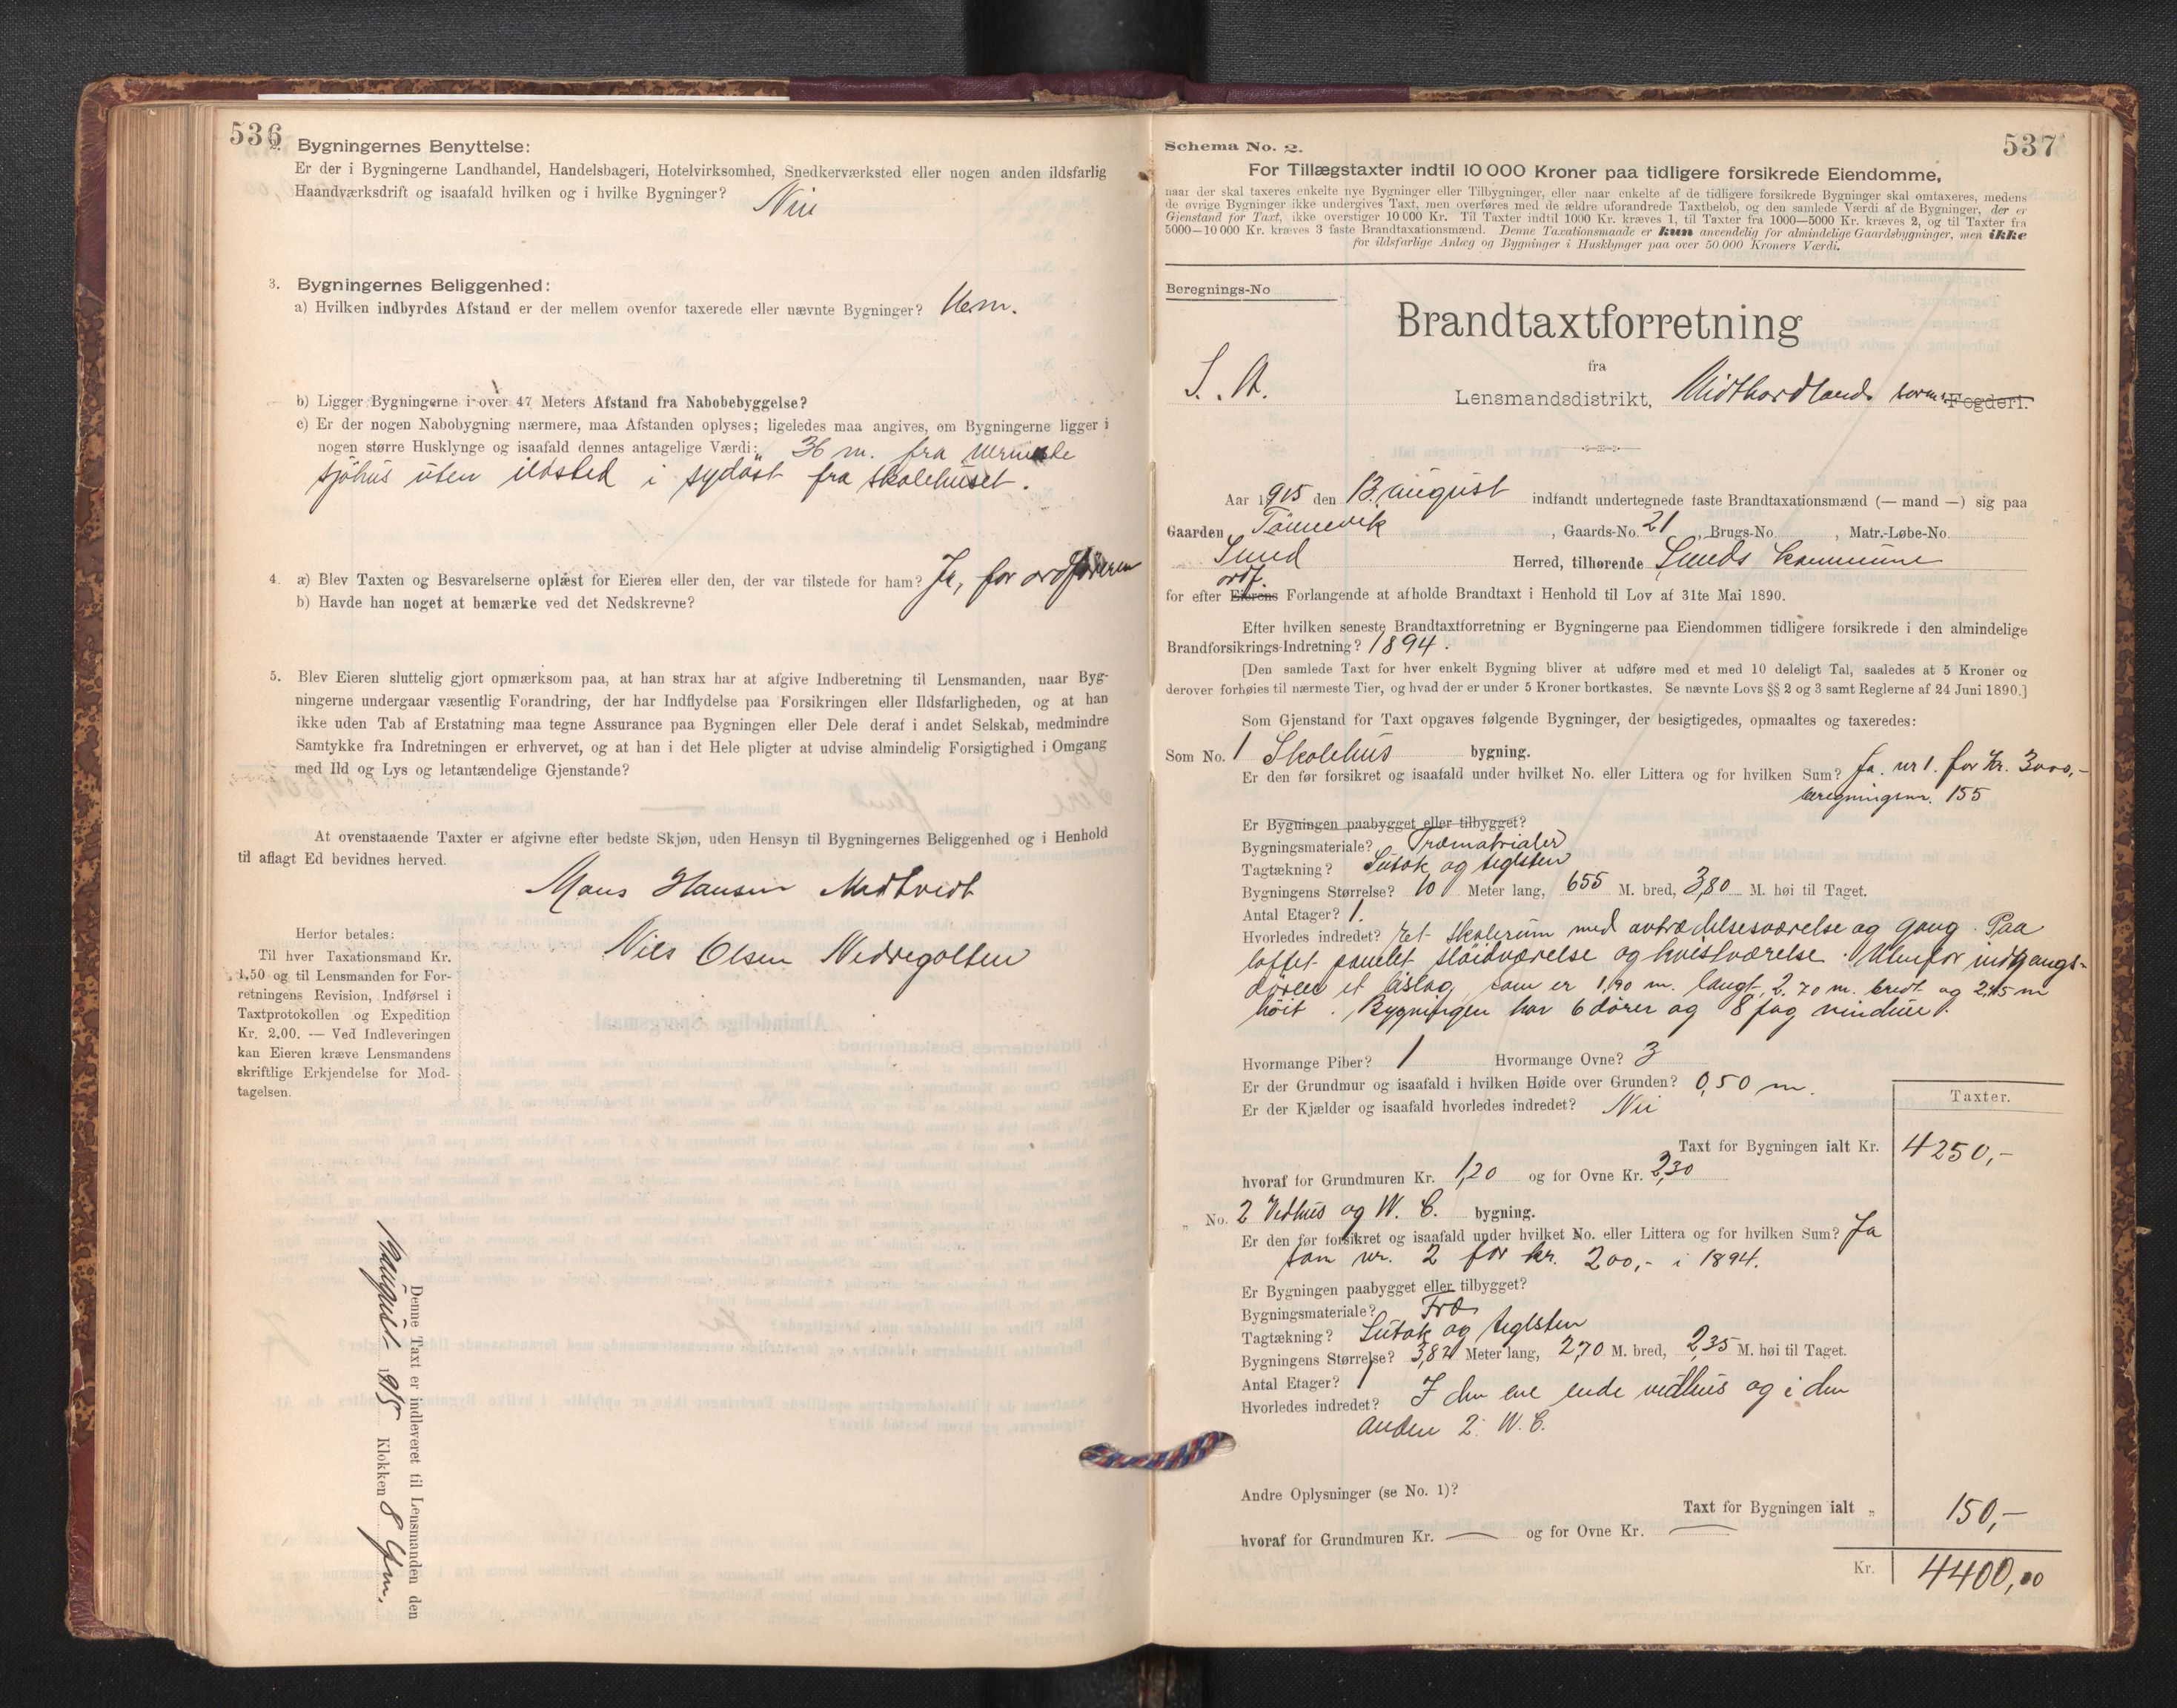 536
2. Bygningernes Benyttelse:
Er der i Bygningerne Landhandel, Handelsbageri, Hotelvirksomhed, Snedkerværksted eller nogen anden ildsfarlig
Haandværksdrift og isaafald hvilken og i hvilke Bygninger? Nei
3. Bygningernes Beliggenhed:
a) Hvilken indbyrdes Afstand er der mellem ovenfor taxerede eller nævnte Bygninger?
b) Ligger Bygningerne i over 47 Meters Afstand fra Nabobebyggelse?
c) Er der nogen Nabobygning nærmere, maa Afstanden oplyses; ligeledes maa angives, om Bygningerne ligger i
nogen større Husklynge og isaafald dennes antagelige Værdi: 36 m. fra nærmeste
sjöhus uten ildsted i sydöst fra skolehuset.
4. a) Blev Taxten og Besvarelserne oplæst for Eieren eller den, der var tilstede for ham? Ja, for ordføreren
b) Havde han noget at bemærke ved det Nedskrevne?
5. Blev Eieren sluttelig gjort opmærksom paa, at han strax har at afgive Indberetning til Lensmanden, naar Byg-
ningerne undergaar væsentlig Forandring, der har Indflydelse paa Forsikringen eller Ildsfarligheden, og at han
ikke uden Tab af Erstatning maa tegne Assurance paa Bygningen eller Dele deraf i andet Selskab, medmindre
Samtykke fra Indretningen er erhvervet, og at han i det Hele pligter at udvise almindelig Forsigtighed i Omgang
med Ild og Lys og letantændelige Gjenstande?
At ovenstaaende Taxter er afgivne efter bedste Skjøn, uden Hensyn til Bygningernes Beliggenhed og i Henhold
til aflagt Ed bevidnes herved.
Mons Hansen Midtveit
Nils Olsen Nedregolten
Herfor betales:
Til hver Taxationsmand Kr.
1.50 og til Lensmanden for For-
retningens Revision, Indførsel i
Taxtprotokollen og Expedition
Kr. 2.00. — Ved Indleveringen
kan Eieren kræve Lensmandens
skriftlige Erkjendelse for Mod-
tagelsen.
Denne Taxt er indleveret til Lensmanden den
13 august 1915 Klokken 8 Fm.
Schema No. 2. 537
For Tillægstaxter indtil 10 000 Kroner paa tidligere forsikrede Eiendomme,
naar der skal taxeres enkelte nye Bygninger eller Tilbygninger, eller naar enkelte af de tidligere forsikrede Bygninger skal omtaxeres, medens
de øvrige Bygninger ikke undergives Taxt, men overføres med de ældre uforandrede Taxtbeløb, og den samlede Værdi af de Bygninger, der er
Gjenstand for Taxt, ikke overstiger 10 000 Kr. Til Taxter indtil 1000 Kr. kræves 1, til Taxter fra 1000—5000 Kr. kræves 2, og til Taxter fra
5000—10 000 Kr. kræves 3 faste Brandtaxationsmænd. Denne Taxationsmaade er kun anvendelig for almindelige Gaardsbygninger, men ikke
for ildsfarlige Anlæg og Bygninger i Husklynger paa over 50 000 Kroners Værdi.
Beregnings-No
Brandtaxtforretning
fra
Lensmandsdistrikt, Midthordlands soren. Fogderi.
Aar 1915 den 13. august indfandt undertegnede faste Brandtaxationsmænd (— mand —) sig paa
Gaarden Tönnevik, Gaards-No. 21, Brugs-No. , Matr.-Løbe-No.
Sund Herred, tilhørende Sunds kommune
ordf.
for efter Eierens Forlangende at afholde Brandtaxt i Henhold til Lov af 31te Mai 1890.
Efter hvilken seneste Brandtaxtforretning er Bygningerne paa Eiendommen tidligere forsikrede i den almindelige
Brandforsikrings-Indretning? 1894.
[Den samlede Taxt for hver enkelt Bygning bliver at udføre med et med 10 deleligt Tal, saaledes at 5 Kroner og
derover forhøies til nærmeste Tier, og hvad der er under 5 Kroner bortkastes. Se nævnte Lovs §§ 2 og 3 samt Reglerne af 24 Juni 1890.]
Som Gjenstand for Taxt opgaves følgende Bygninger, der besigtigedes, opmaaltes og taxeredes:
Som No. 1 Skolehus bygning.
Er den før forsikret og isaafald under hvilket No. eller Littera og for hvilken Sum? Ja. nr 1. for Kr. 3000,-
beregningsnr. 155
Er Bygningen paabygget eller tilbygget?
Bygningsmateriale? Træmatrialer
Tagtækning? Sutak og teglsten
Bygningens Størrelse? 10 Meter lang, 655 M. bred, 3,80 M. høi til Taget.
Antal Etager? 1.
Hvorledes indredet? Et skolerum med avtrædelsesværelse og gang. Paa
loftet panelet sløidværelse og kvistværelse. Utenfor indgangs-
døren et bislag, som er 1,90 m. langt, 2.70 m. bredt og 2,45 m
höit. Bygningen har 6 dører og 8 fag vinduer.
Hvormange Piber? 1 Hvormange Ovne? 3
Er der Grundmur og isaafald i hvilken Høide over Grunden? 0,50 m.
Er der Kjælder og isaafald hvorledes indredet? Nei
Taxter.
Taxt for Bygningen ialt Kr. 4250,-
hvoraf for Grundmuren Kr. 1,20 og for Ovne Kr. 2,30
" No. 2 Vedhus og W. C. bygning.
Er den før forsikret og isaafald under hvilket No. eller Littera og for hvilken Sum? Ja
som nr. 2 for kr. 200,- i 1894.
Er Bygningen paabygget eller tilbygget?
Bygningsmateriale? Træ
Tagtækning? Sutak og teglsten
Bygningens Størrelse? 3,82 Meter lang, 2,70 M. bred, 2,35 M. høi til Taget.
Antal Etager? 1
Hvorledes indredet? I den ene ende vedhus og i den
anden 2. W. C.
Andre Oplysninger (se No. 1)?
Taxt for Bygningen ialt " 150,-
hvoraf for Grundmuren Kr. — og for Ovne Kr. —
Kr. 4400,00